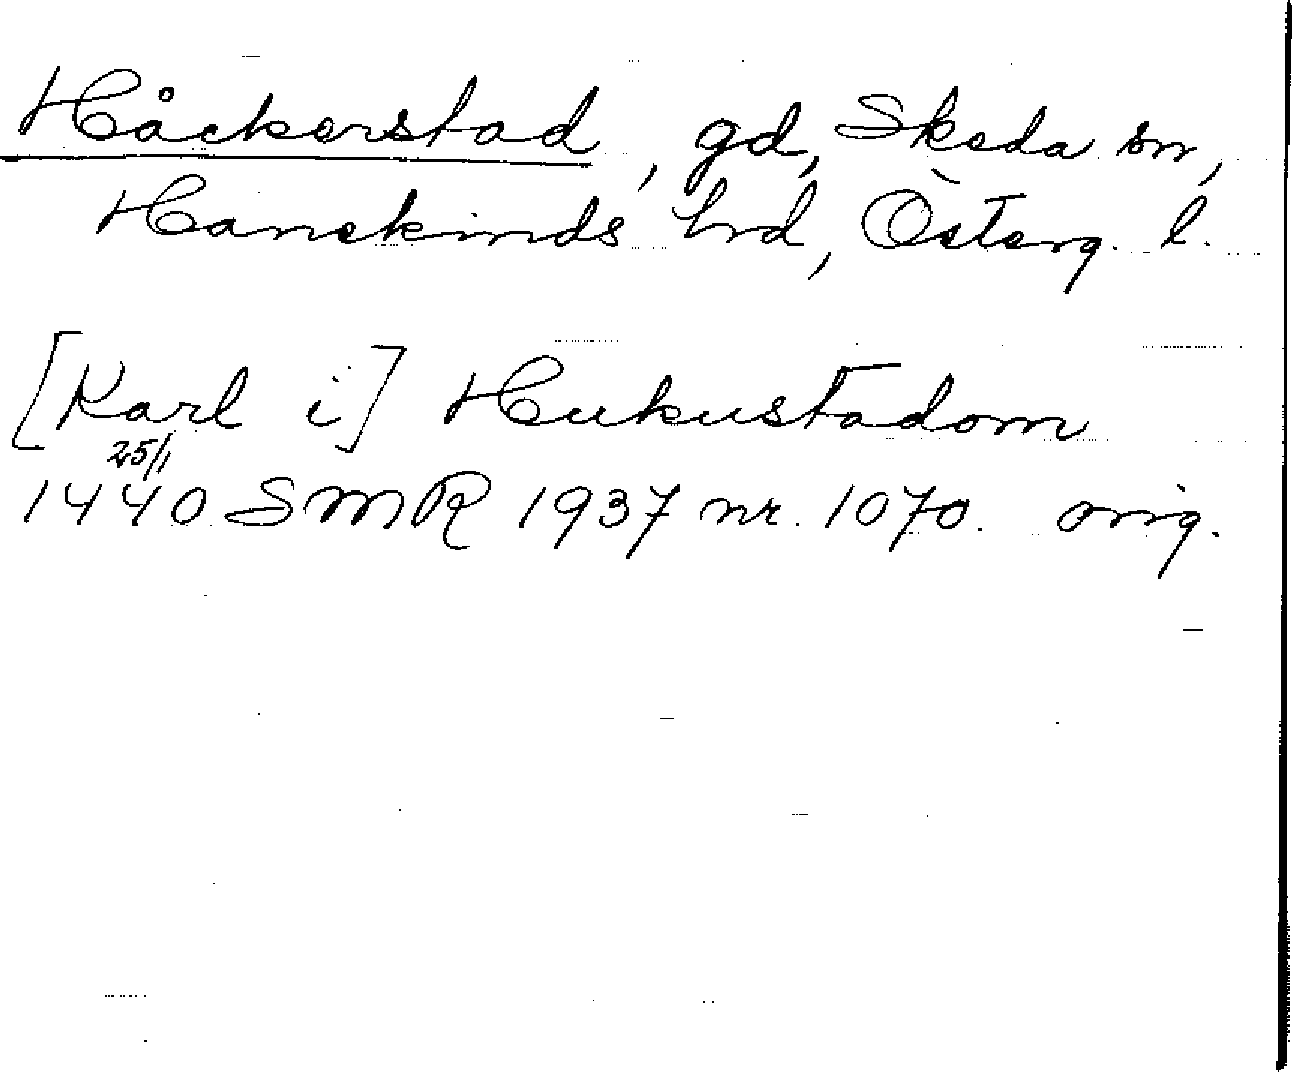 Håckerstad, gd, Skeda sn,
Hanekinds hrd, Österg. l.
[Karl i] Hukustadom
25/1
1440 SMR 1937 nr. 1070. orig.